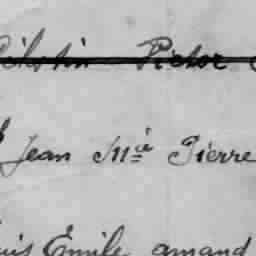 Célestin Victor
Jean Mié Pierre
uis Émile amand